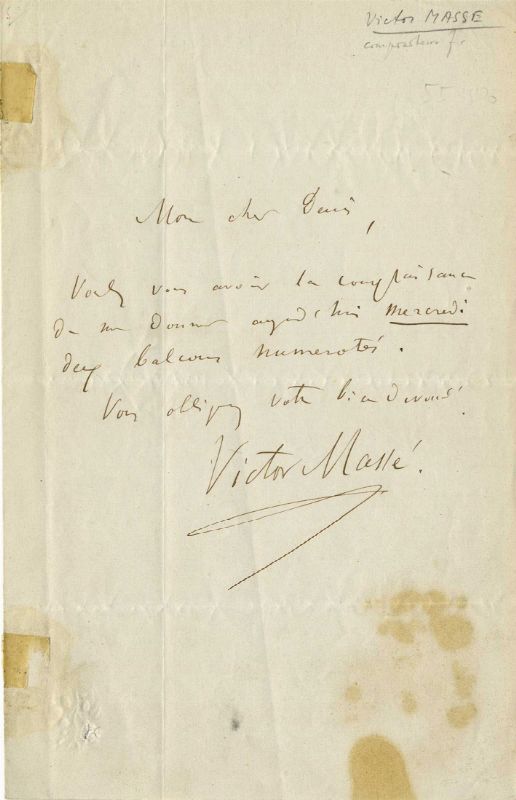 Victor MASSÉ
compositeur fr
Mon cher Denis,
Voulez vous avoir la complaisance
de me donner aujourd'hui mercredi
deux balcons numerotés.
Vous obligerez votre bien devoué.
Victor Massé.